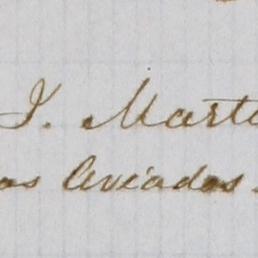 J. Marti
os Aviados